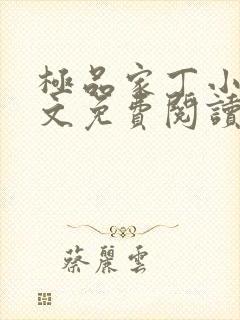 極品家丁小
文免費閱讀
蔡麗雲